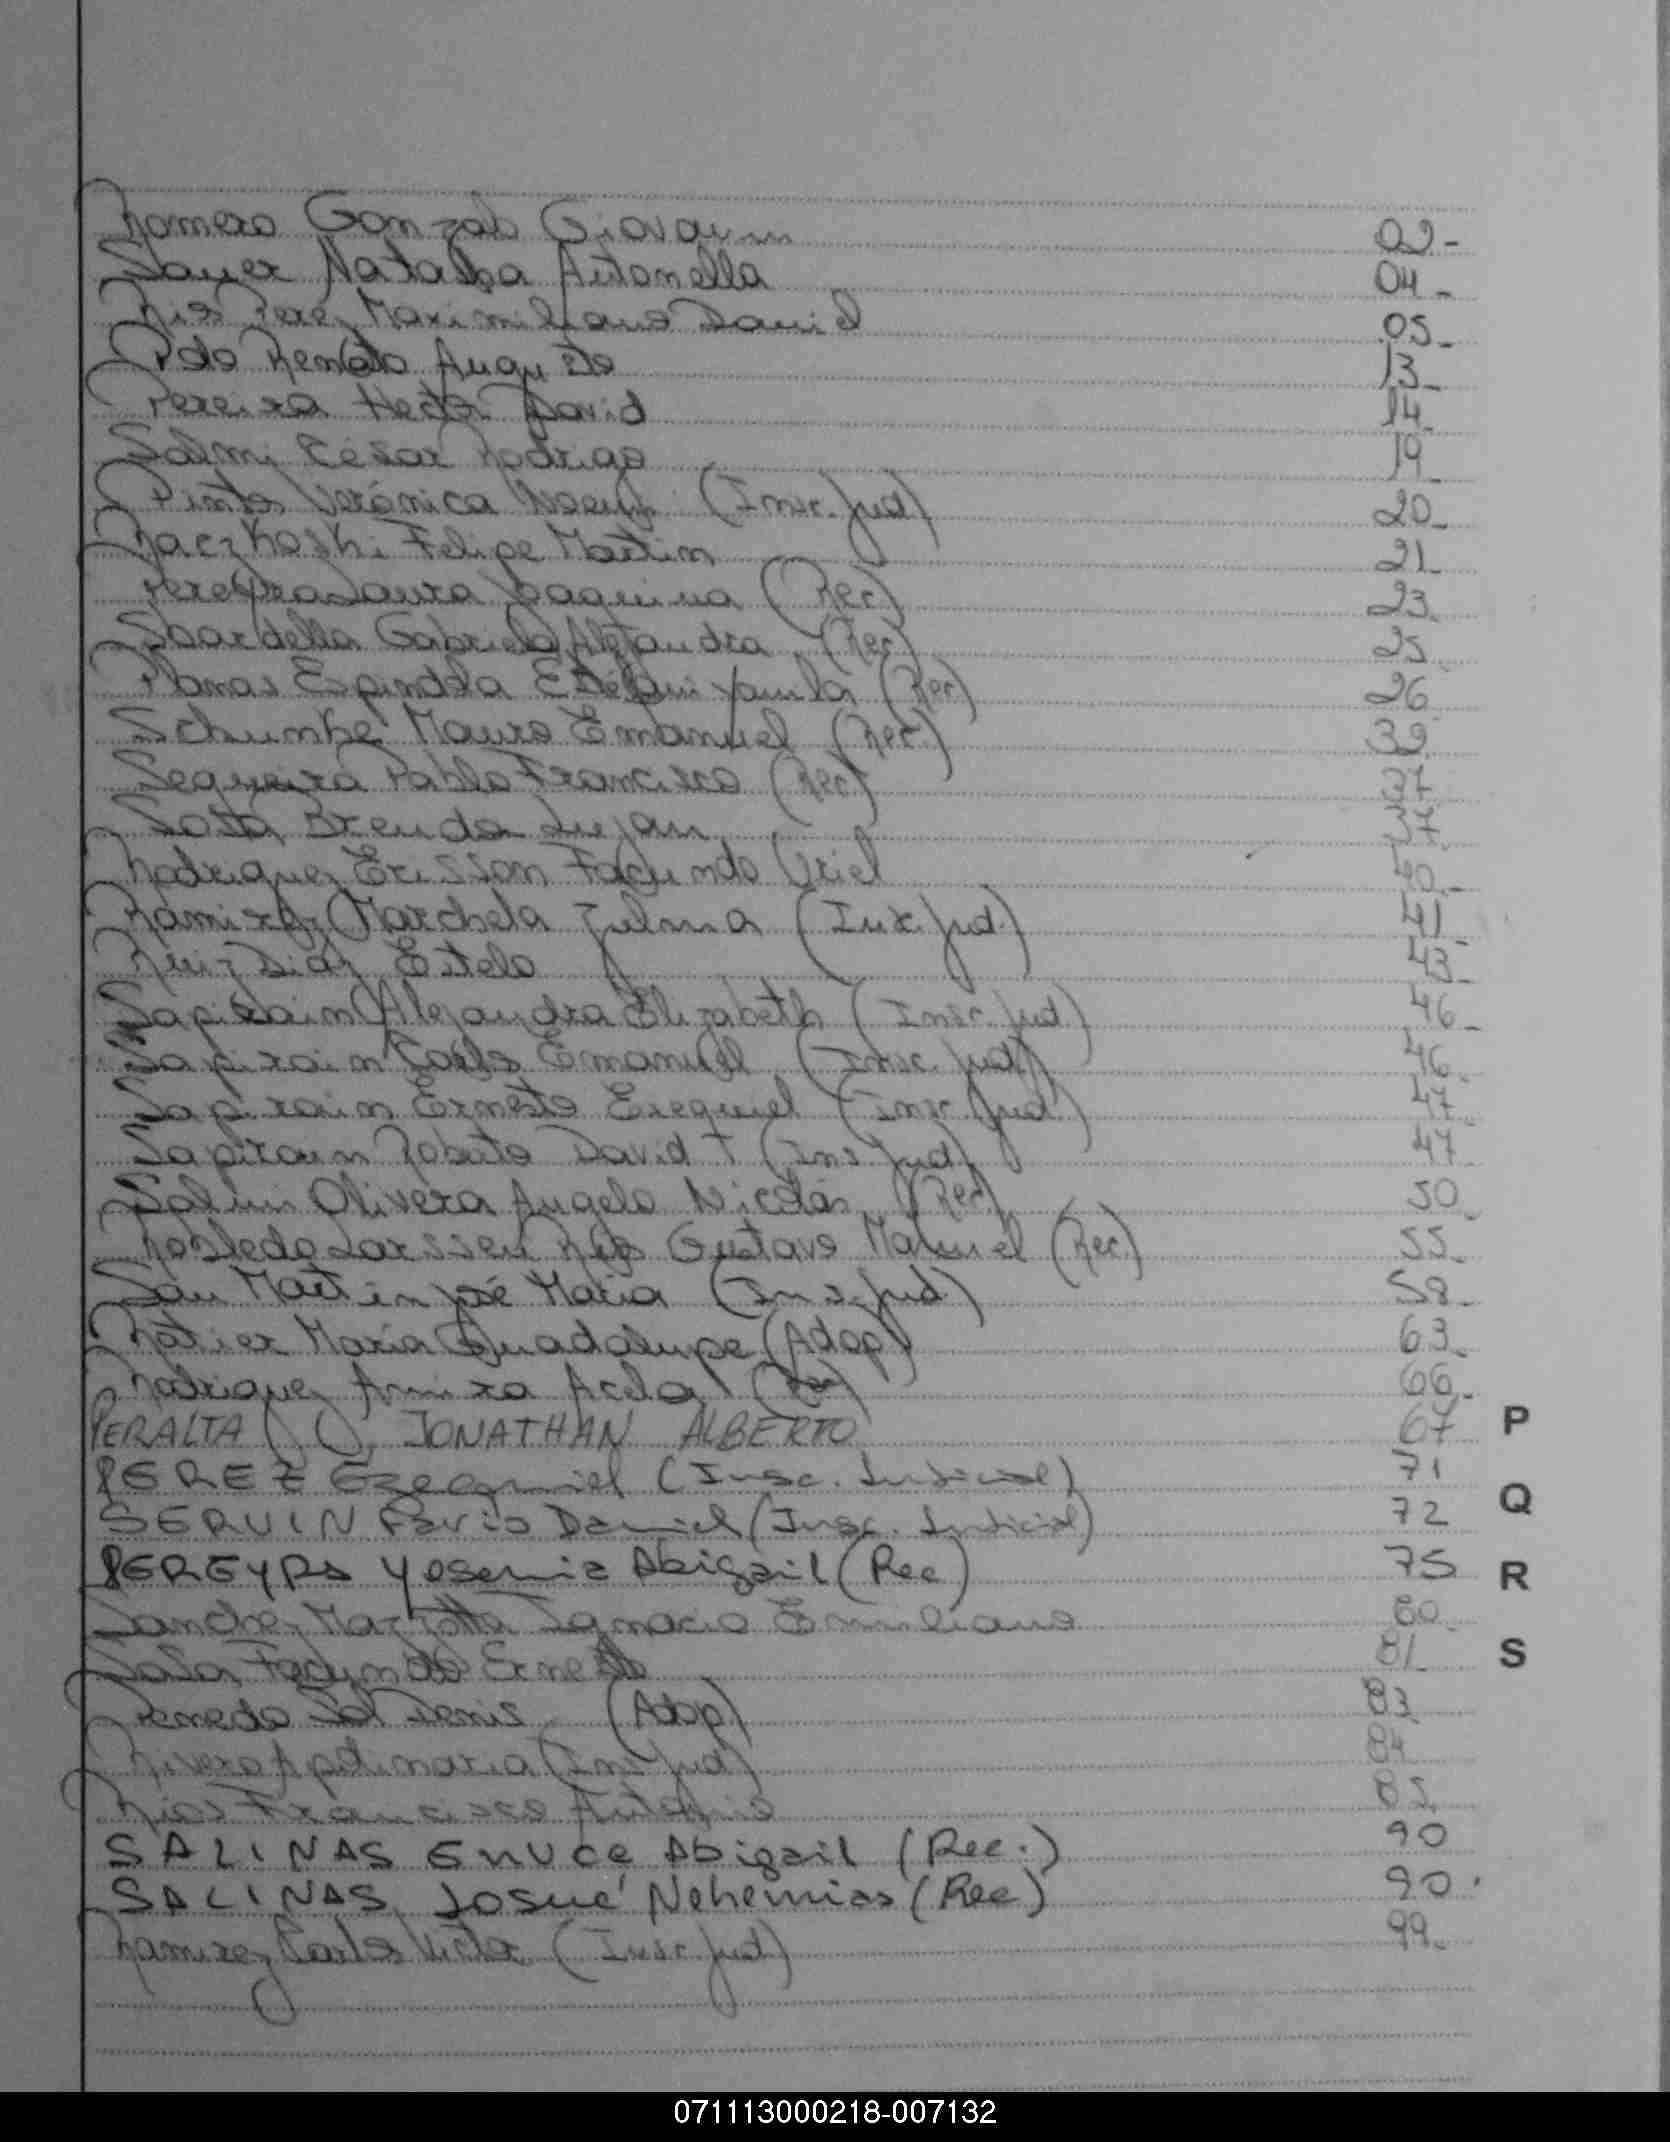 Romero Gonzalo Giovanni 02-
Sauer Natalia Antonella 04-
Rios Perez Maximiliano David 05-
Pdo Renato Augusto 13-
Pereira Hector David 14-
Salmi César Rodrigo 19-
Pintos Verónica Noemi (Insc. Jud) 20-
Raczkoski Felipe Martin 21-
Pereyra Laura Joaquina (Rec) 23-
Sbardella Gabriela Alejandra (Rec) 25
Planas Espindola Estefani Yamila (Rec) 26
Schumke Mauro Emanuel (Rec.) 32
Sequeira Pablo Francisco (Rec) 37
Sosa Brenda Lujan 37-
Rodriguez Erisson Facundo Uriel 40-
Ramirez Marchela Zulma (Insc. Jud.) 41-
Ruiz Diaz Estela 43-
Sapirain Alejandra Elizabeth (Insc. Jud.) 46-
Sapirain Carlos Emanuel (Insc. Jud) 46-
Sapirain Ernesto Ezequiel (Insc. Jud.) 47-
Sapirain Roberto David (Ins. Jud) 47-
Salmi Olivera Angelo Nicolás (Rec) 50-
Robledo Larssen Rios Gustavo Manuel (Rec) 55-
San Martin José María (Ins. Jud.) 58-
Ratier María Guadalupe (Adop) 63-
Rodriguez Amira Acela (Rec) 66-
PERALTA JONATHAN ALBERTO 67
PEREZ Ezequiel (Insc. Judicial) 71
SERVIN Favio Daniel (Insc. Judicial) 72
PEREYRA Yesemia Abigail (Rec) 75
Sanchez Mazzotta Ignacio Emiliano 80-
Sosa Facundo Ernesto 81-
Penedo Sol Denis (Adop) 83
Rivero Apolinaria (Ins. Jud) 84
Rios Francisco Antonio 85
SALINAS Enuce Abigail (Rec.) 90
SALINAS Josué Nehemias (Rec) 90.
Ramirez Carlos Victor (Insc. Jud) 99-
P
Q
R
S
071113000218-007132